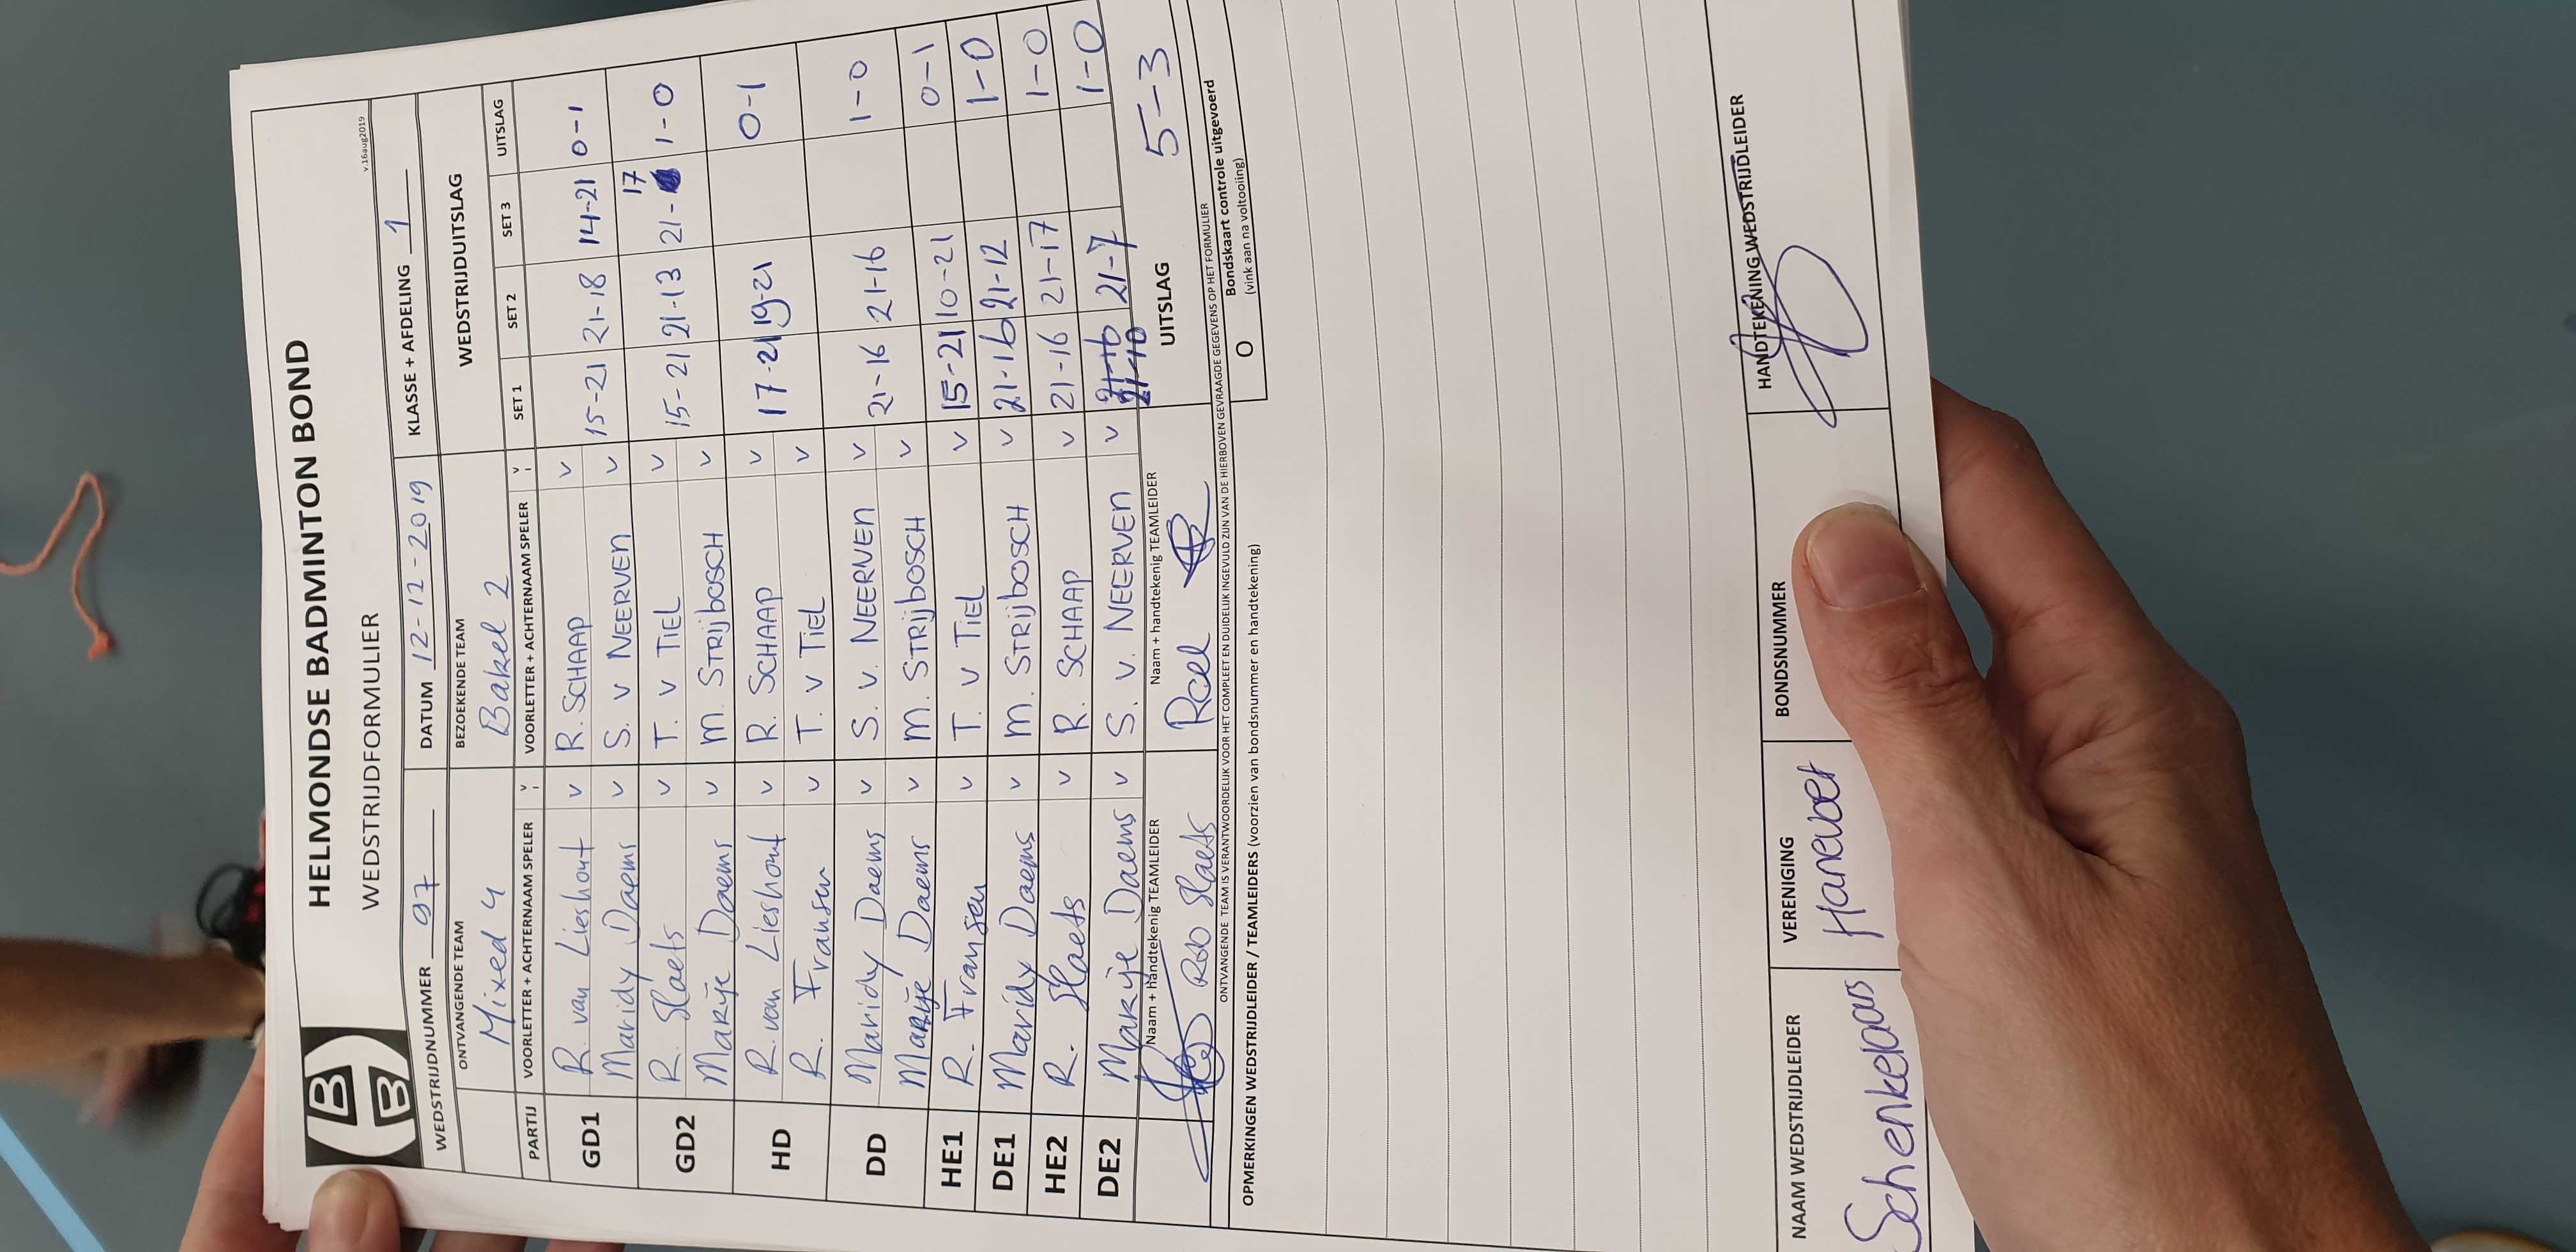 HELMONDSE BADMINTON BOND
WEDSTRIJDFORMULIER
v.16aug2019
WEDSTRIJDNUMMER 97 DATUM 12-12-2019 KLASSE + AFDELING 1
ONTVANGENDE TEAM BEZOEKENDE TEAM WEDSTRIJDUITSLAG
Mixed 4 Bakel 2
PARTIJ VOORLETTER + ACHTERNAAM SPELER V VOORLETTER + ACHTERNAAM SPELER V SET 1 SET 2 SET 3 UITSLAG
GD1 R. van Lieshout v R. SCHAAP v 15-21 21-18 14-21 0-1
Maridy Daems v S. v NEERVEN v
GD2 R. Slaets v T. v TIEL v 15-21 21-13 21-17 1-0
Marije Daems v M. STRIJBOSCH v
HD R. van Lieshout v R. SCHAAP v 17-21 19-21 0-1
R. Fransen v T. v TIEL v
DD Maridy Daems v S. v. NEERVEN v 21-16 21-16 1-0
Marije Daems v M. STRIJBOSCH v
HE1 R. Fransen v T. v TIEL v 15-21 10-21 0-1
DE1 Maridy Daems v M. STRIJBOSCH v 21-16 21-12 1-0
HE2 R. Slaets v R. SCHAAP v 21-16 21-17 1-0
DE2 Marije Daems v S. v. NEERVEN v 21-10 21-7 1-0
Naam + handtekenig TEAMLEIDER Naam + handtekenig TEAMLEIDER UITSLAG 5-3
Rob Slaets Roel
ONTVANGENDE TEAM IS VERANTWOORDELIJK VOOR HET COMPLEET EN DUIDELIJK INGEVULD ZIJN VAN DE HIERBOVEN GEVRAAGDE GEGEVENS OP HET FORMULIER
OPMERKINGEN WEDSTRIJDLEIDER / TEAMLEIDERS (voorzien van bondsnummer en handtekening) O Bondskaart controle uitgevoerd
(vink aan na voltooiing)
NAAM WEDSTRIJDLEIDER VERENIGING BONDSNUMMER HANDTEKENING WEDSTRIJDLEIDER
Schenkelaars Hanevoet